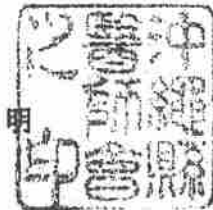 沖繩縣
醫師會
之印
明